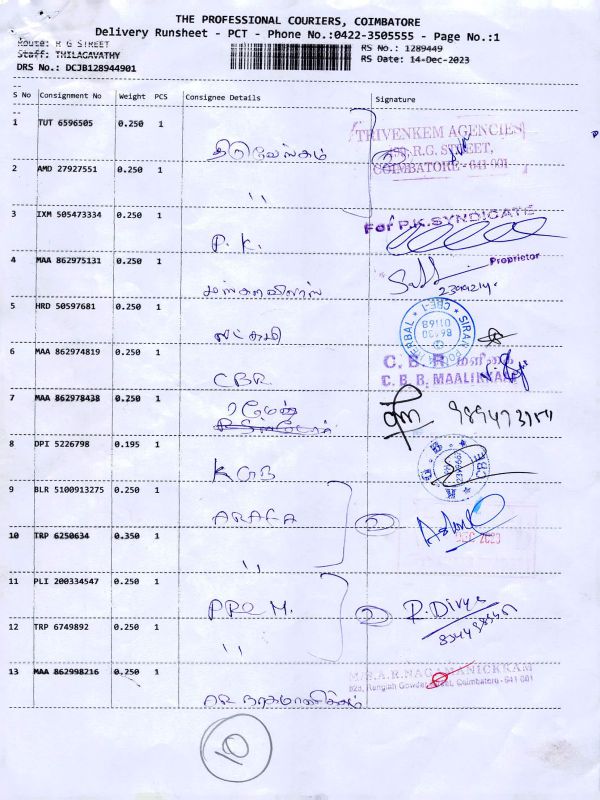 THE PROFESSIONAL COURIERS, COIMBATORE
Delivery Runsheet - PCT - Phone No.:0422-3505555 - Page No.:1
Route: R G STREET
RS No.: 1289449
Staff: THILAGAVATHY
RS Date: 14-Dec-2023
DRS No.: DCJB128944901
S No Consignment No Weight PCS Consignee Details Signature
1 TUT 6596505 0.250 1
TRIVENKEM AGENCIES
R.G. STREET,
COIMBATORE - 641 001
திருவேங்கம்
2 AMD 27927551 0.250 1
"
3 IXM 505473334 0.250 1
For P.K.SYNDICATE
P. K.
Proprietor
4 MAA 862975131 0.250 1
5 HRD 50597681 0.250 1
லட்சுமி
6 MAA 862974819 0.250 1
C. B. R. மாளிகை
C. B. R. MAALIKKAI
CBR
7 MAA 862978438 0.250 1
ரமேஷ்
8 DPI 5226798 0.195 1
KGB
9 BLR 5100913275 0.250 1
ARAFA
2
DEC 2023
10 TRP 6250634 0.350 1
"
11 PLI 200334547 0.250 1
PRO M.
2
R. Divya
12 TRP 6749892 0.250 1
"
13 MAA 862998216 0.250 1
M/S.A.R.NAGAMANICKKAM
Rangiah Gowder Street, Coimbatore - 641 001
AR நாகமாணிக்கம்
10